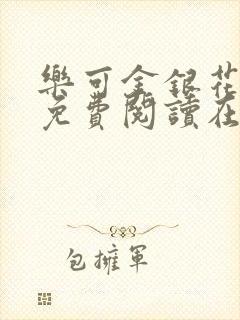 樂可金銀花
免費閱讀在
包擁軍